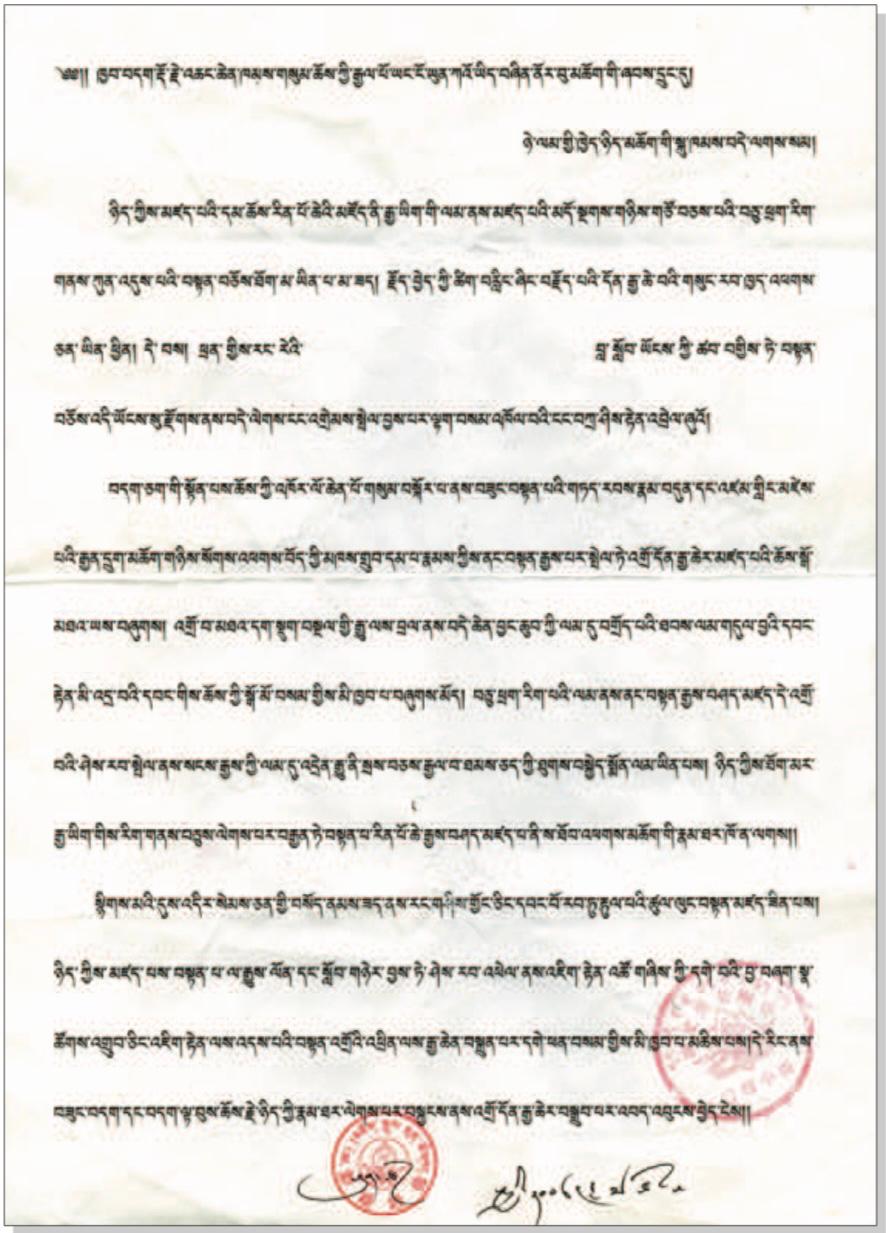 ༄༅།། ཁྱབ་བདག་རྡོ་རྗེ་འཆང་ཆེན་ཁམས་གསུམ་ཆོས་ཀྱི་རྒྱལ་པོ་ཡང་ངོ་ཡུན་ཀའོ་ཡིད་བཞིན་ནོར་བུ་མཆོག་གི་ཞབས་དྲུང་དུ།
ཉེ་ལམ་གྱི་ཁྱེད་ཉིད་མཆོག་གི་སྐུ་ཁམས་བདེ་ལགས་སམ།
ཉིད་ཀྱིས་མཛད་པའི་དམ་ཆོས་རིན་པོ་ཆེའི་མཛོད་ནི་རྒྱ་ཡིག་གི་ལམ་ནས་མཛད་པའི་མདོ་སྔགས་གཉིས་གཙོ་བཅས་པའི་བཅུ་ཕྲག་རིག་
གནས་ཀུན་འདུས་པའི་བསྟན་བཅོས་ཐོག་མ་ཡིན་པ་མ་ཟད། རྗོད་བྱེད་ཀྱི་ཚིག་བརླིང་ཞིང་བརྗོད་པའི་དོན་རྒྱ་ཆེ་བའི་གསུང་རབ་ཁྱད་འཕགས་
ཅན་ཡིན་ཕྱིན། དེ་བས། ཕྲན་གྱིས་རང་རེའི་ བླ་སློབ་ཡོངས་ཀྱི་ཚབ་བགྱིས་ཏེ་བསྟན་
བཅོས་འདི་ཡོངས་སུ་རྫོགས་ནས་བདེ་ལེགས་ངང་འགྲེམས་སྤེལ་བྱས་པར་ལྷག་བསམ་འཁོལ་བའི་ངང་བཀྲ་ཤིས་རྟེན་འབྲེལ་ཞུའོ།
བདག་ཅག་གི་སྟོན་པས་ཆོས་ཀྱི་འཁོར་ལོ་ཆེན་པོ་གསུམ་བསྐོར་པ་ནས་བཟུང་བསྟན་པའི་གཏད་རབས་རྣམ་བདུན་དང་འཛམ་གླིང་མཛེས་
པའི་རྒྱན་དྲུག་མཆོག་གཉིས་སོགས་འཕགས་བོད་ཀྱི་མཁས་གྲུབ་དམ་པ་རྣམས་ཀྱིས་ནང་བསྟན་རྒྱས་པར་སྤེལ་ཏེ་འགྲོ་དོན་རྒྱ་ཆེར་མཛད་པའི་ཆོས་སྒོ་
མཐའ་ཡས་བཞུགས། འགྲོ་བ་མཐའ་དག་སྡུག་བསྔལ་གྱི་རྒྱུ་ལས་བྲལ་ནས་བདེ་ཆེན་བྱང་ཆུབ་ཀྱི་ལམ་དུ་བགྲོད་པའི་ཐབས་ལམ་གདུལ་བྱའི་དབང་
རྟེན་མི་འདྲ་བའི་དབང་གིས་ཆོས་ཀྱི་སྒོ་མོ་བསམ་གྱིས་མི་ཁྱབ་པ་བཞུགས་མོད། བཅུ་ཕྲག་རིག་པའི་ལམ་ནས་ནང་བསྟན་རྒྱས་བཤད་མཛད་དེ་འགྲོ་
བའི་ཤེས་རབ་སྤེལ་ནས་སངས་རྒྱས་ཀྱི་ལམ་དུ་འདྲེན་རྒྱུ་ནི་སྲས་བཅས་རྒྱལ་བ་ཐམས་ཅད་ཀྱི་ཐུགས་བསྐྱེད་སྨོན་ལམ་ཡིན་པས། ཉིད་ཀྱིས་ཐོག་མར་
རྒྱ་ཡིག་གིས་རིག་གནས་བཅུས་ལེགས་པར་བརྒྱན་ཏེ་བསྟན་པ་རིན་པོ་ཆེ་རྒྱས་བཤད་མཛད་པ་ནི་ས་ཐོབ་འཕགས་མཆོག་གི་རྣམ་ཐར་ཁོ་ན་ལགས།།
སྙིགས་མའི་དུས་འདིར་སེམས་ཅན་གྱི་བསོད་ནམས་ཟད་ནས་རང་གཤིས་གྱོང་ཅིང་དབང་པོ་རབ་ཏུ་རྟུལ་པའི་ཚུལ་ལུང་བསྟན་མཛད་ཟིན་པས།
ཉིད་ཀྱིས་མཛད་པས་བསྟན་པ་ལ་རྒྱུས་ལོན་དང་སློབ་གཉེར་བྱས་ཏེ་ཤེས་རབ་འཕེལ་ནས་འཇིག་རྟེན་འཚོ་གཞིས་ཀྱི་དགེ་བའི་བྱ་བཞག་སྣ་
ཚོགས་འགྲུབ་ཅིང་འཇིག་རྟེན་ལས་འདས་པའི་བསྟན་འགྲོའི་འཕྲིན་ལས་རྒྱ་ཆེན་བསྐྲུན་པར་དགེ་ཕན་བསམ་གྱིས་མི་ཁྱབ་པ་མཆིས་པས།དེ་རིང་ནས་
བཟུང་བདག་དང་བདག་ལྟ་བུས་ཆོས་རྗེ་ཉིད་ཀྱི་རྣམ་ཐར་ལེགས་པར་བསྐྱངས་ནས་འགྲོ་དོན་རྒྱ་ཆེར་བསྒྲུབ་པར་འབད་འབུངས་བྱེད་ངེས།།